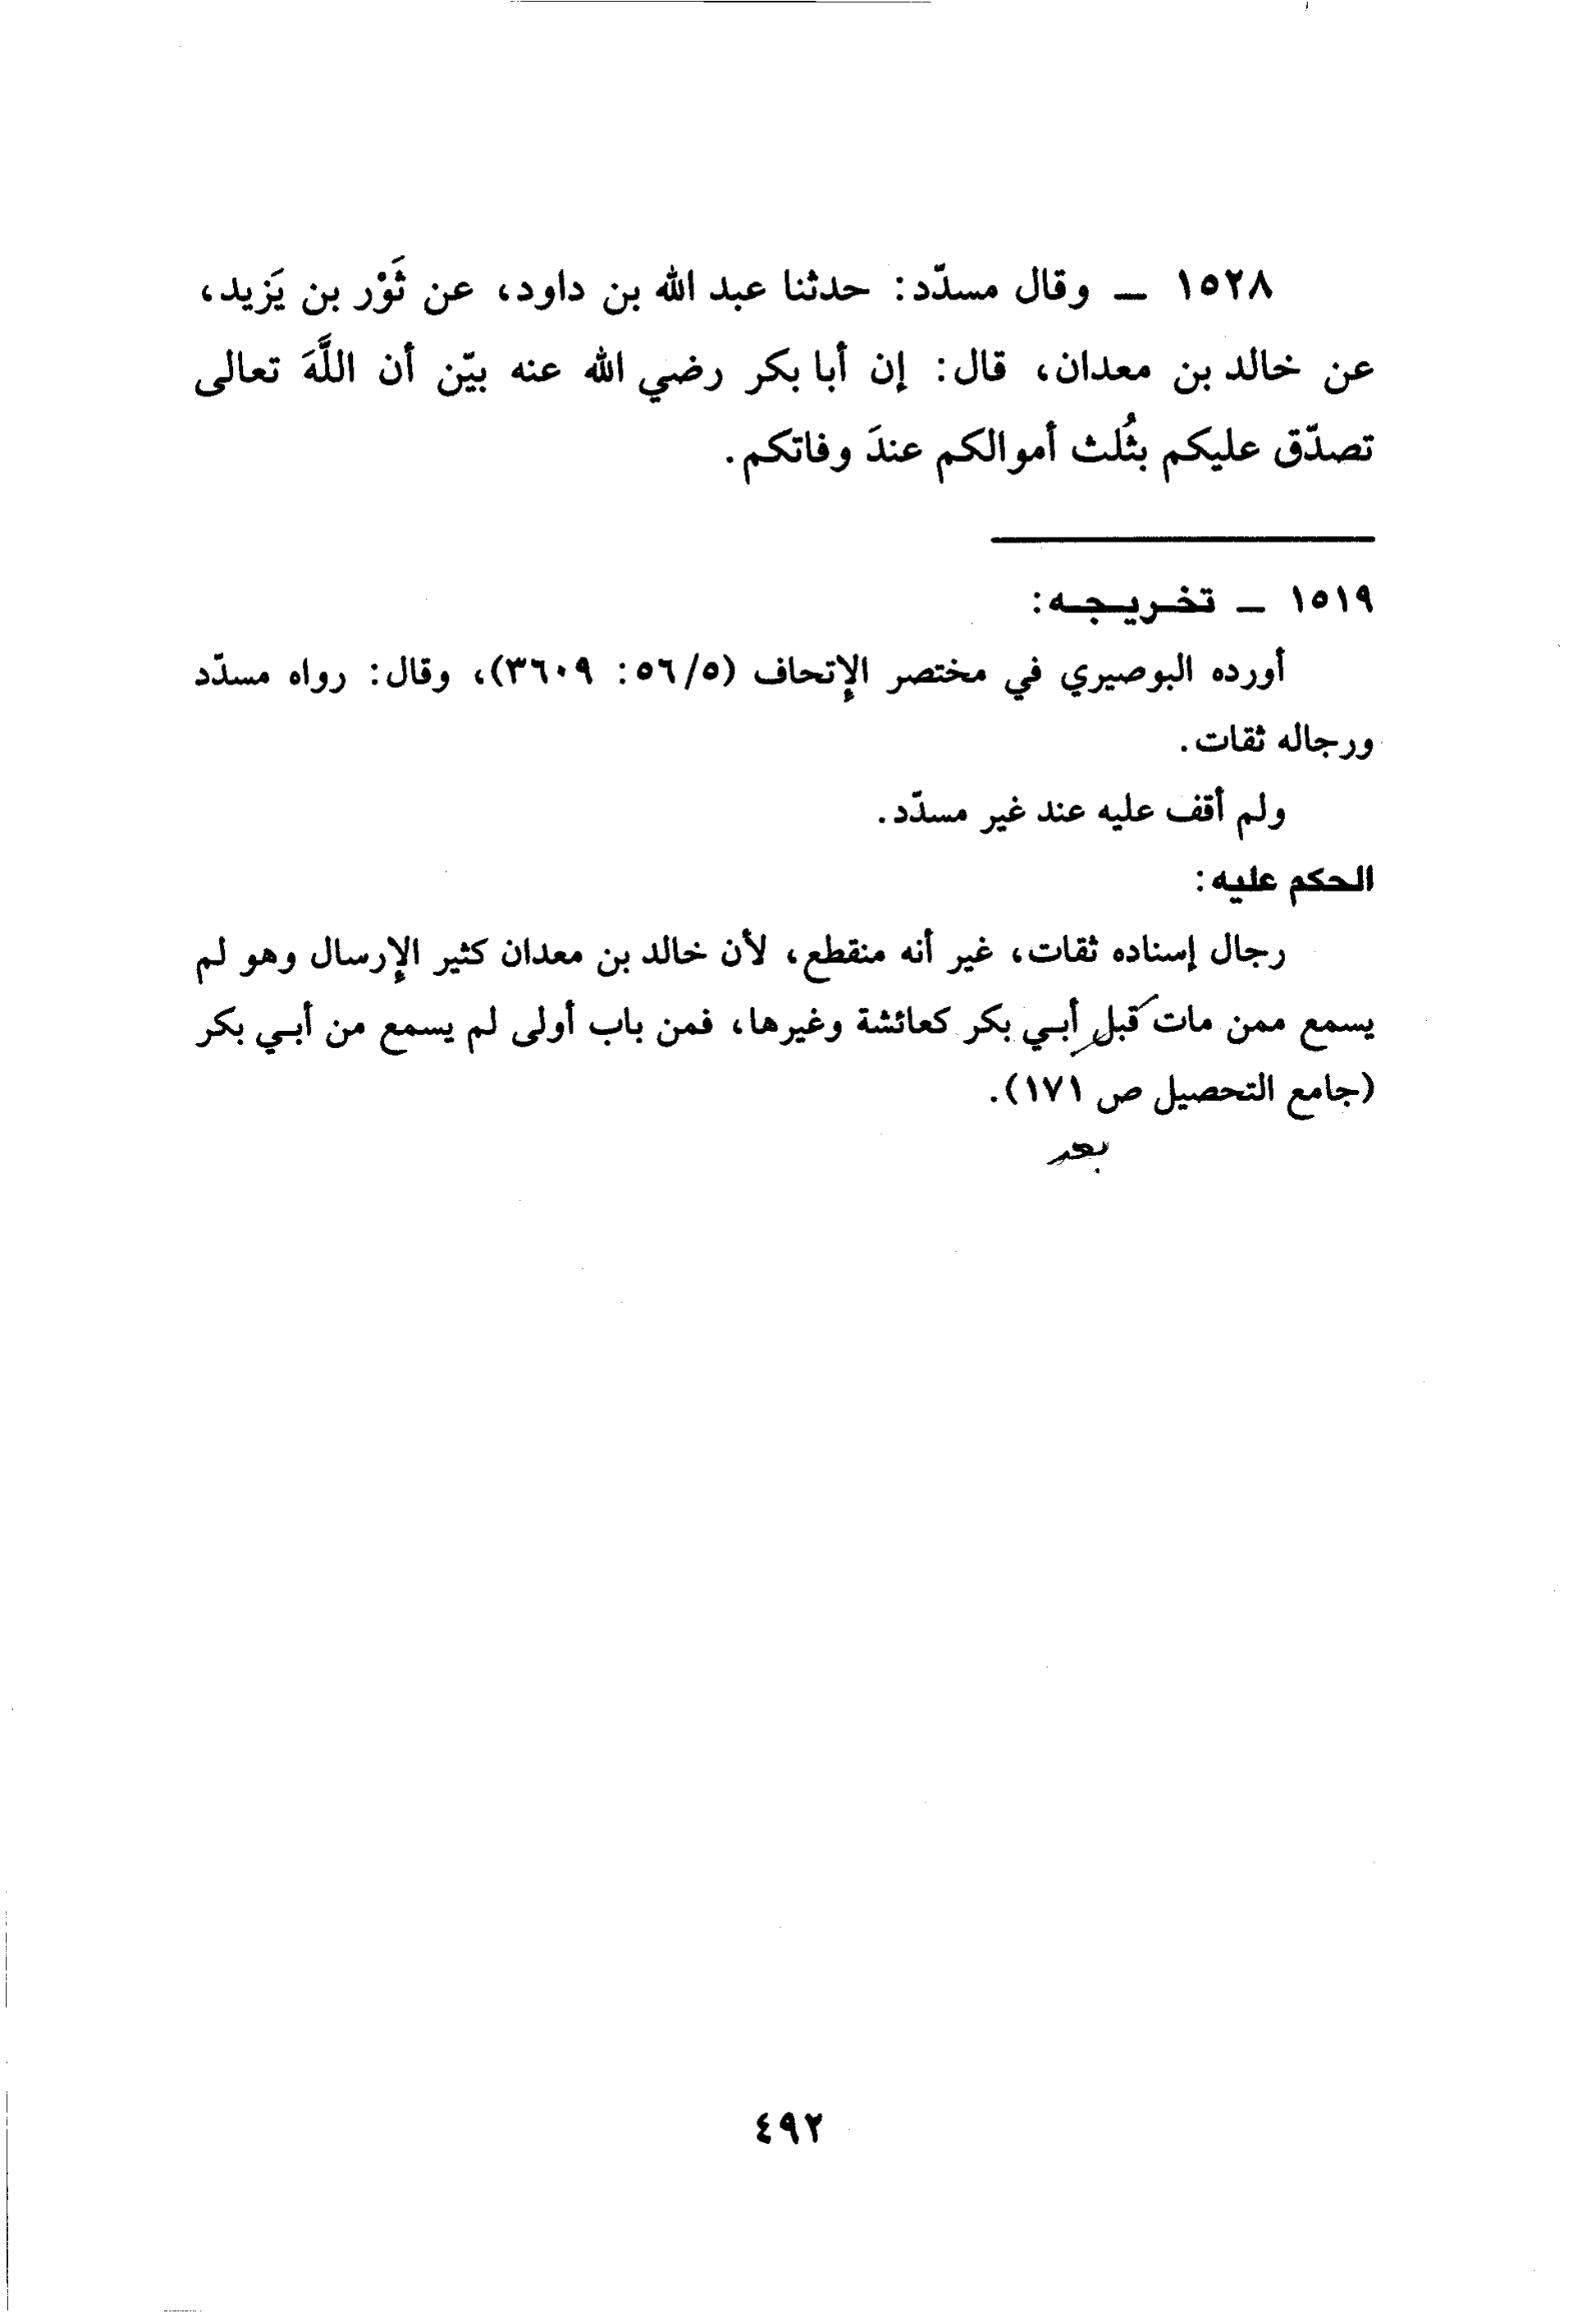 ١٥٢٨ ـ وقال مسدّد: حدثنا عبد الله بن داود، عن ثَوْر بن يَزيد،
عن خالد بن معدان، قال: إن أبا بكر رضي الله عنه بيّن أن اللَّهَ تعالى
تصدّق عليكم بثُلث أموالكم عندَ وفاتكم.
١٥١٩ ـ تخريجه:
أورده البوصيري في مختصر الإتحاف (٥/٥٦: ٣٦٠٩)، وقال: رواه مسدّد
ورجاله ثقات.
ولم أقف عليه عند غير مسدّد.
الحكم عليه:
رجال إسناده ثقات، غير أنه منقطع، لأن خالد بن معدان كثير الإرسال وهو لم
يسمع ممن مات قبل أبي بكر كعائشة وغيرها، فمن باب أولى لم يسمع من أبي بكر
(جامع التحصيل ص ١٧١).
بعد
٤٩٢